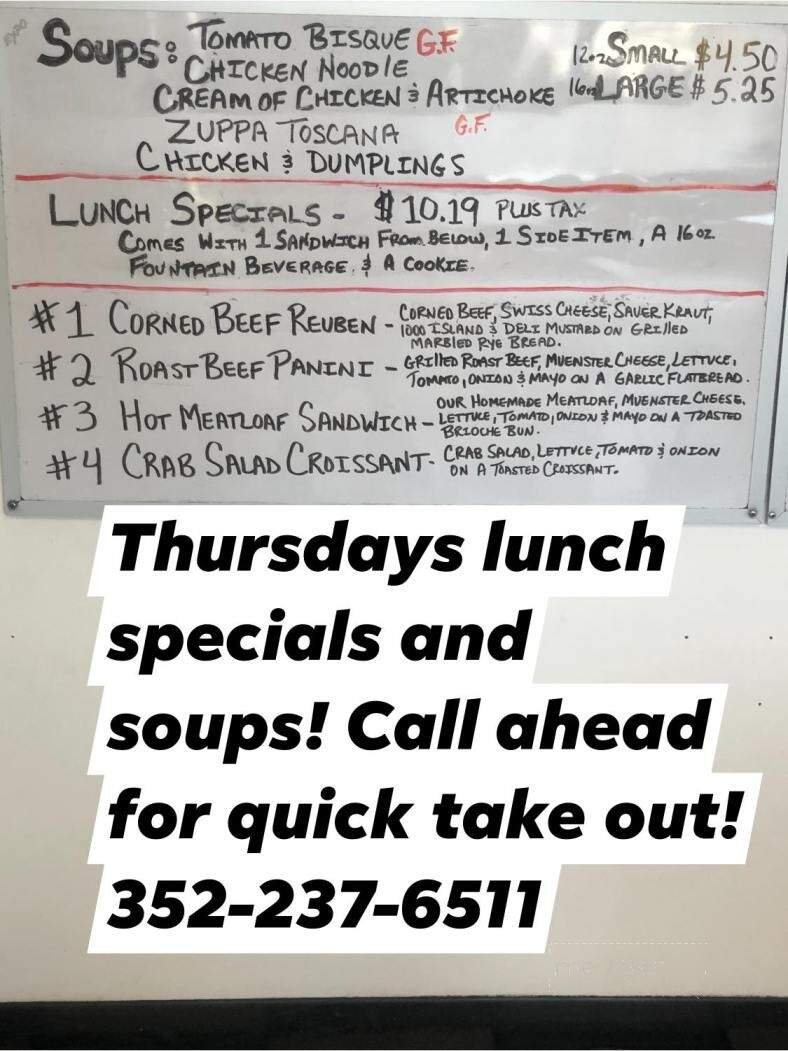 Soups: Tomato Bisque G.F.
12oz Small $4.50
Chicken Noodle
Cream of Chicken & Artichoke
16oz Large $5.25
Zuppa Toscana G.F.
Chicken & Dumplings
Lunch Specials - $10.19 Plus Tax
Comes With 1 Sandwich From Below, 1 Side Item, A 16oz
Fountain Beverage, & A Cookie.
#1 Corned Beef Reuben - Corned Beef, Swiss Cheese, Sauer Kraut,
1000 Island & Deli Mustard on Grilled
Marbled Rye Bread.
#2 Roast Beef Panini - Grilled Roast Beef, Muenster Cheese, Lettuce,
Tomato, Onion & Mayo on a Garlic Flatbread.
#3 Hot Meatloaf Sandwich - Our Homemade Meatloaf, Muenster Cheese,
Lettuce, Tomato, Onion & Mayo on a Toasted
Brioche Bun.
#4 Crab Salad Croissant - Crab Salad, Lettuce, Tomato & Onion
on a Toasted Croissant.
Thursdays lunch
specials and
soups! Call ahead
for quick take out!
352-237-6511